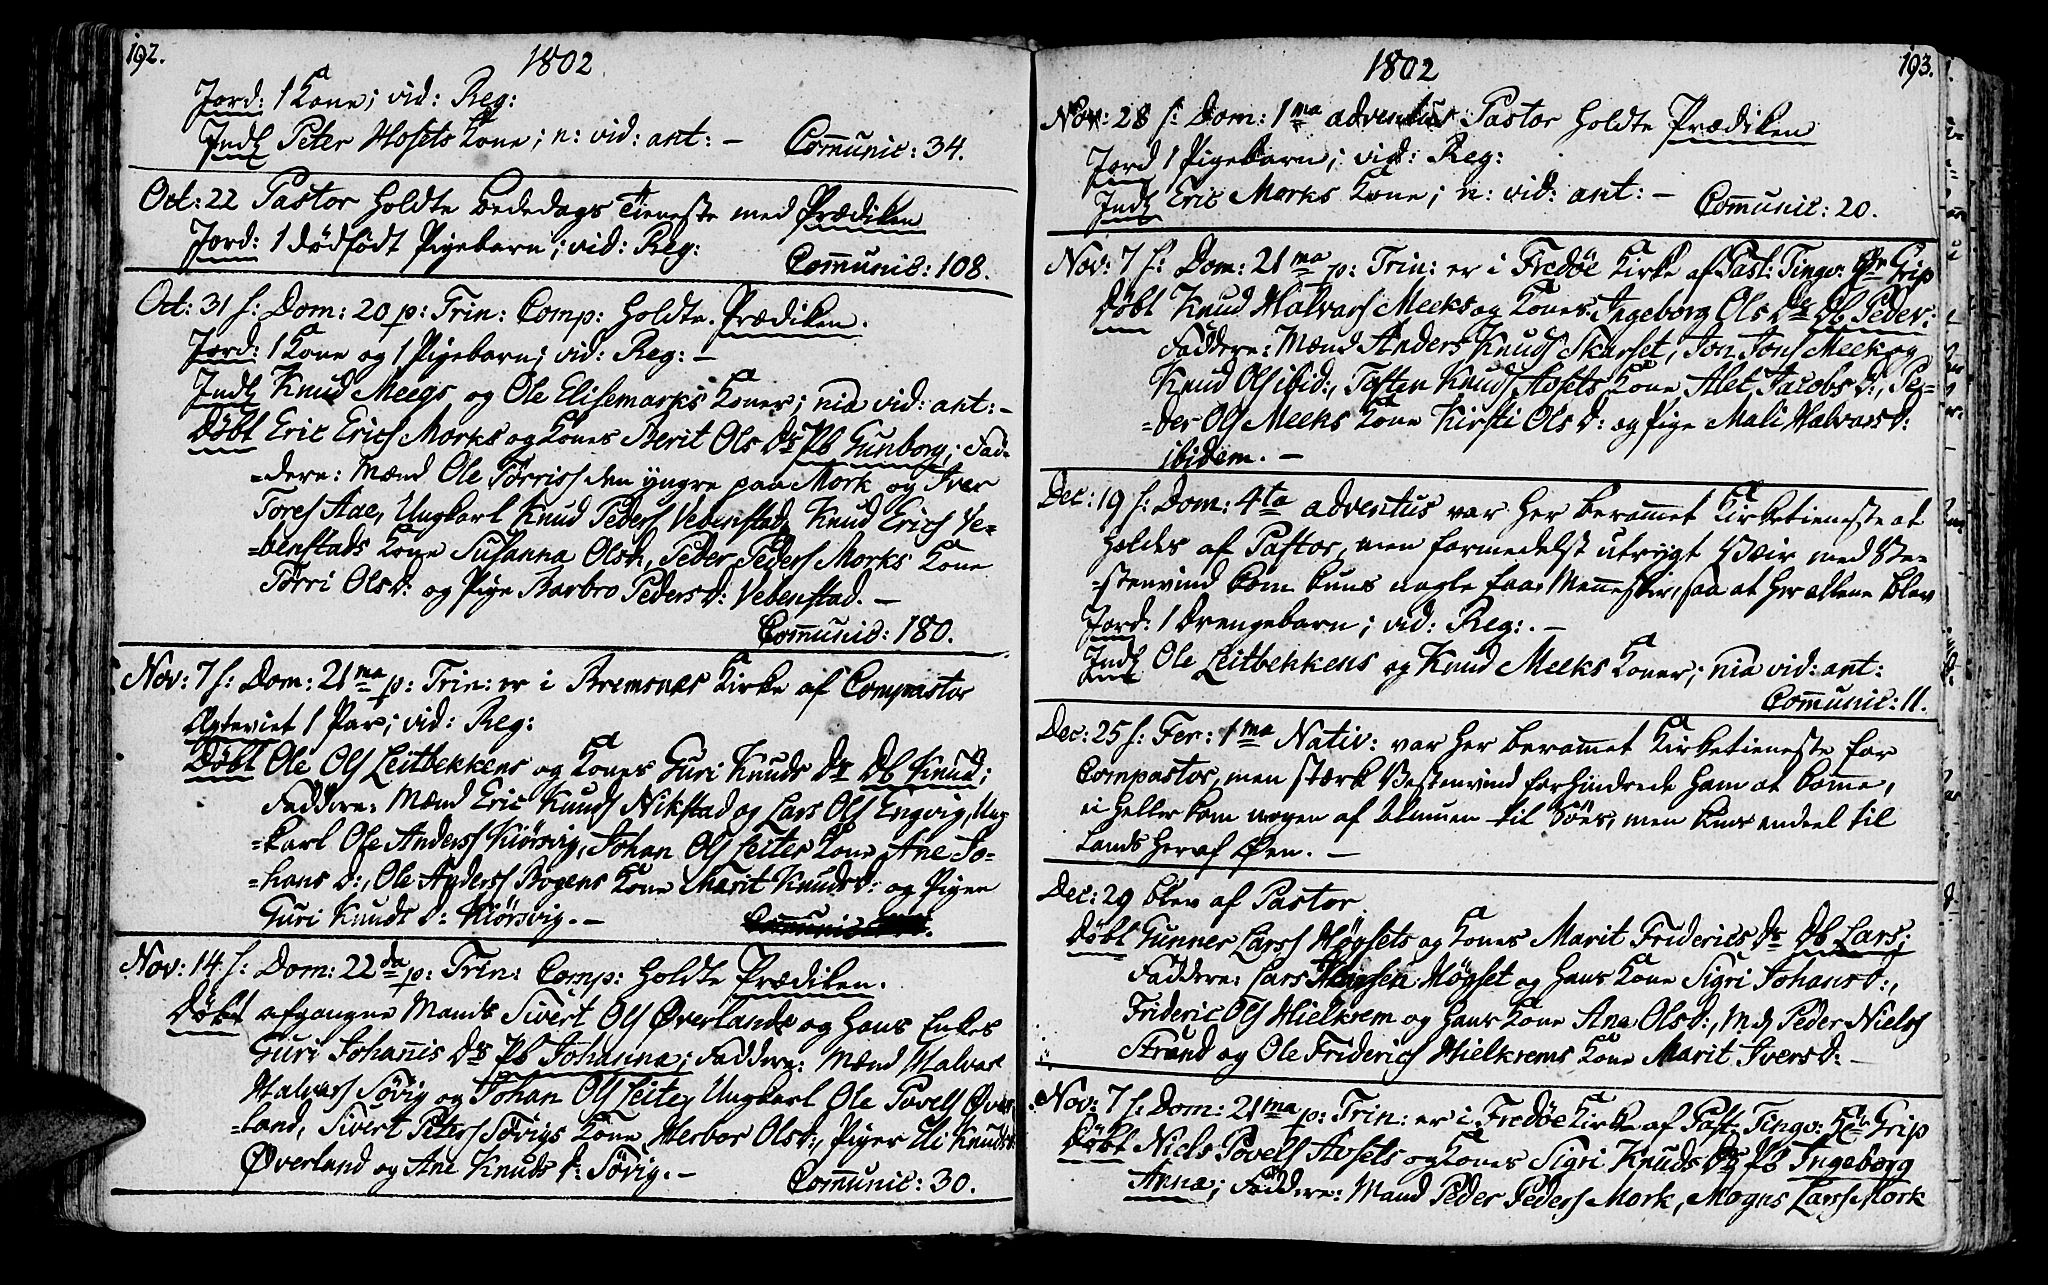 192.
1802
Jord: 1 Kone; vid: Reg:
Indl Peter Hosets Kone; n: vid: ant: - Communic: 34.
Oct: 22 Pastor holdte Bededags Tieneste med Prædiken
Jord: 1 dødfødt Pigebarn; vid: Reg:
Communic: 108.
Oct: 31 s: Dom: 20 p: Trin: Comp: holdte Prædiken.
Jord: 1 Kone og 1 Pigebarn; vid: Reg: -
Indl Knud Meegs og Ole Elisemarks Koner; nia vid: ant: -
Døbt Eric Erics Morks og Kones Berit Ols Dr Pb Gunborg; Fad-
=dere: Mænd Ole Tørriss den yngre paa Mork og Iver
Tores Aae, Ungkarl Knud Peders Vebenstad, Knud Erics Ve-
=benstads Kone Susanna Olsd:, Peder Peders Morks Kone
Tørri Ols d: og Pige Barbro Peders d: Vebenstad. -
Communic: 180.
Nov: 7 s: Dom: 21 ma p: Trin: er i Bremsnæs Kirke af Compastor
Ægteviet 1 Par; vid: Reg:
Døbt Ole Ols Leitbekkens og Kones Guri Knuds Dr Db Knud;
Faddere: Mænd Eric Knuds Nikstad og Lars Ols Engvig, Ung
=karl Ole Anderss Kiørsvig, Johan Ols Leites Kone Ane Jo-
=hans d:, Ole Anderss Bogens Kone Marit Knuds d: og Pigen
Guri Knudt d: Kiørsvig. -
Nov: 14 s: Dom: 22 da p: Trin: Comp: holdte Prædiken.
Døbt afgangne Mands Sivert Ols Øverlands og hans Enkes
Guri Johannis Dr Pb Johanna; Faddere: Mænd Halvar
Halvars Søvig og Johan Ols Leite, Ungkarl Ole Povels Øver
=land, Sivert Peters Søvigs Kone Herbor Ols d:, Piger Eli Knuds d:
Øverland og Ane Knuds d: Søvig. - Communic: 30.
193.
1802
Nov: 28 s: Dom: 1 ma adventus Pastor holdte Prædiken
Jord 1 Pigebarn; vid: Reg:
Indl Eric Morks Kone; n: vid: ant: - Communic: 20.
Nov: 7 s: Dom: 21 ma p: Trin: er i Fredøe Kirke af Past: Tingv: Hr Grip
Døbt Knud Halvars Meeks og Kones Ingeborg Ols Dr Db Peder;
Faddere: Mænd Anders Knuds Skarset, Jon Jons Meek og
Knud Ols ibid:, Tosten Knuds Aasets Kone Alet Jacobs d:, Pe-
=der Ols Meeks Kone Kirsti Ols d: og Pige Mali Halvars d:
ibidem. -
Dec: 19 s: Dom: 4 ta adventus var her berammet Kirketieneste at
holdes af Pastor, men formedelst utrygt Veir med Ve-
=stenvind kom kuns nogle faae Mennesker, saa at her allene blev
Jord: 1 Drengebarn; vid: Reg:. -
Indl Ole Leitbekkens og Knud Meeks Koner; nia vid: ant:
Communic: 11.
Dec: 25 s: Fer: 1 ma Nativ: var her berammet Kirketieneste for
Compastor, men stærk Vestenvind forhindrede ham at komme,
ei heller kom nogen af Almuen til Søes, men kuns endeel til
Lands her af Øen. -
Dec: 29 blev af Pastor
Døbt Gunner Larss Høgsets og Kones Marit Friderics Dr Db Lars;
Faddere: Lars Hansen Høgset og hans Kone Sigri Johans d:,
Frideric Ols Hielkrem og hans Kone Ana Ols d:, Md Peder Niels
Strand og Ole Friderics Hielkrems Kone Marit Ivers d: -
Nov: 7 s: Dom: 21 ma p: Trin: er i Fredøe Kirke af Past: Tingv: Hr Grip
Døbt Niels Povels Aasets og Kones Sigri Knuds Dr Pb Ingeborg
Anna; Faddere: Mænd Peder Peders Mork, Mogns Lars Mork